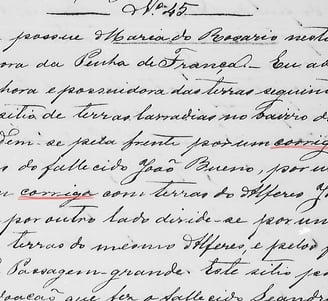 Nº 45
possue Maria do Rosario neste
ora da Penha de França. Eu ab
hora e possuidora das terras seguin
sitio de terras lavradias no bairro do
dem-se pela frente por um corrigo
s do fallecido João Bueno, por u
u corrigo com terras do Alferes J
por outro lado divide-se por um
terras do mesmo Alferes, e pelos f
Passagem-grande. Este sitio p
doação que fez o fallecido Leandr